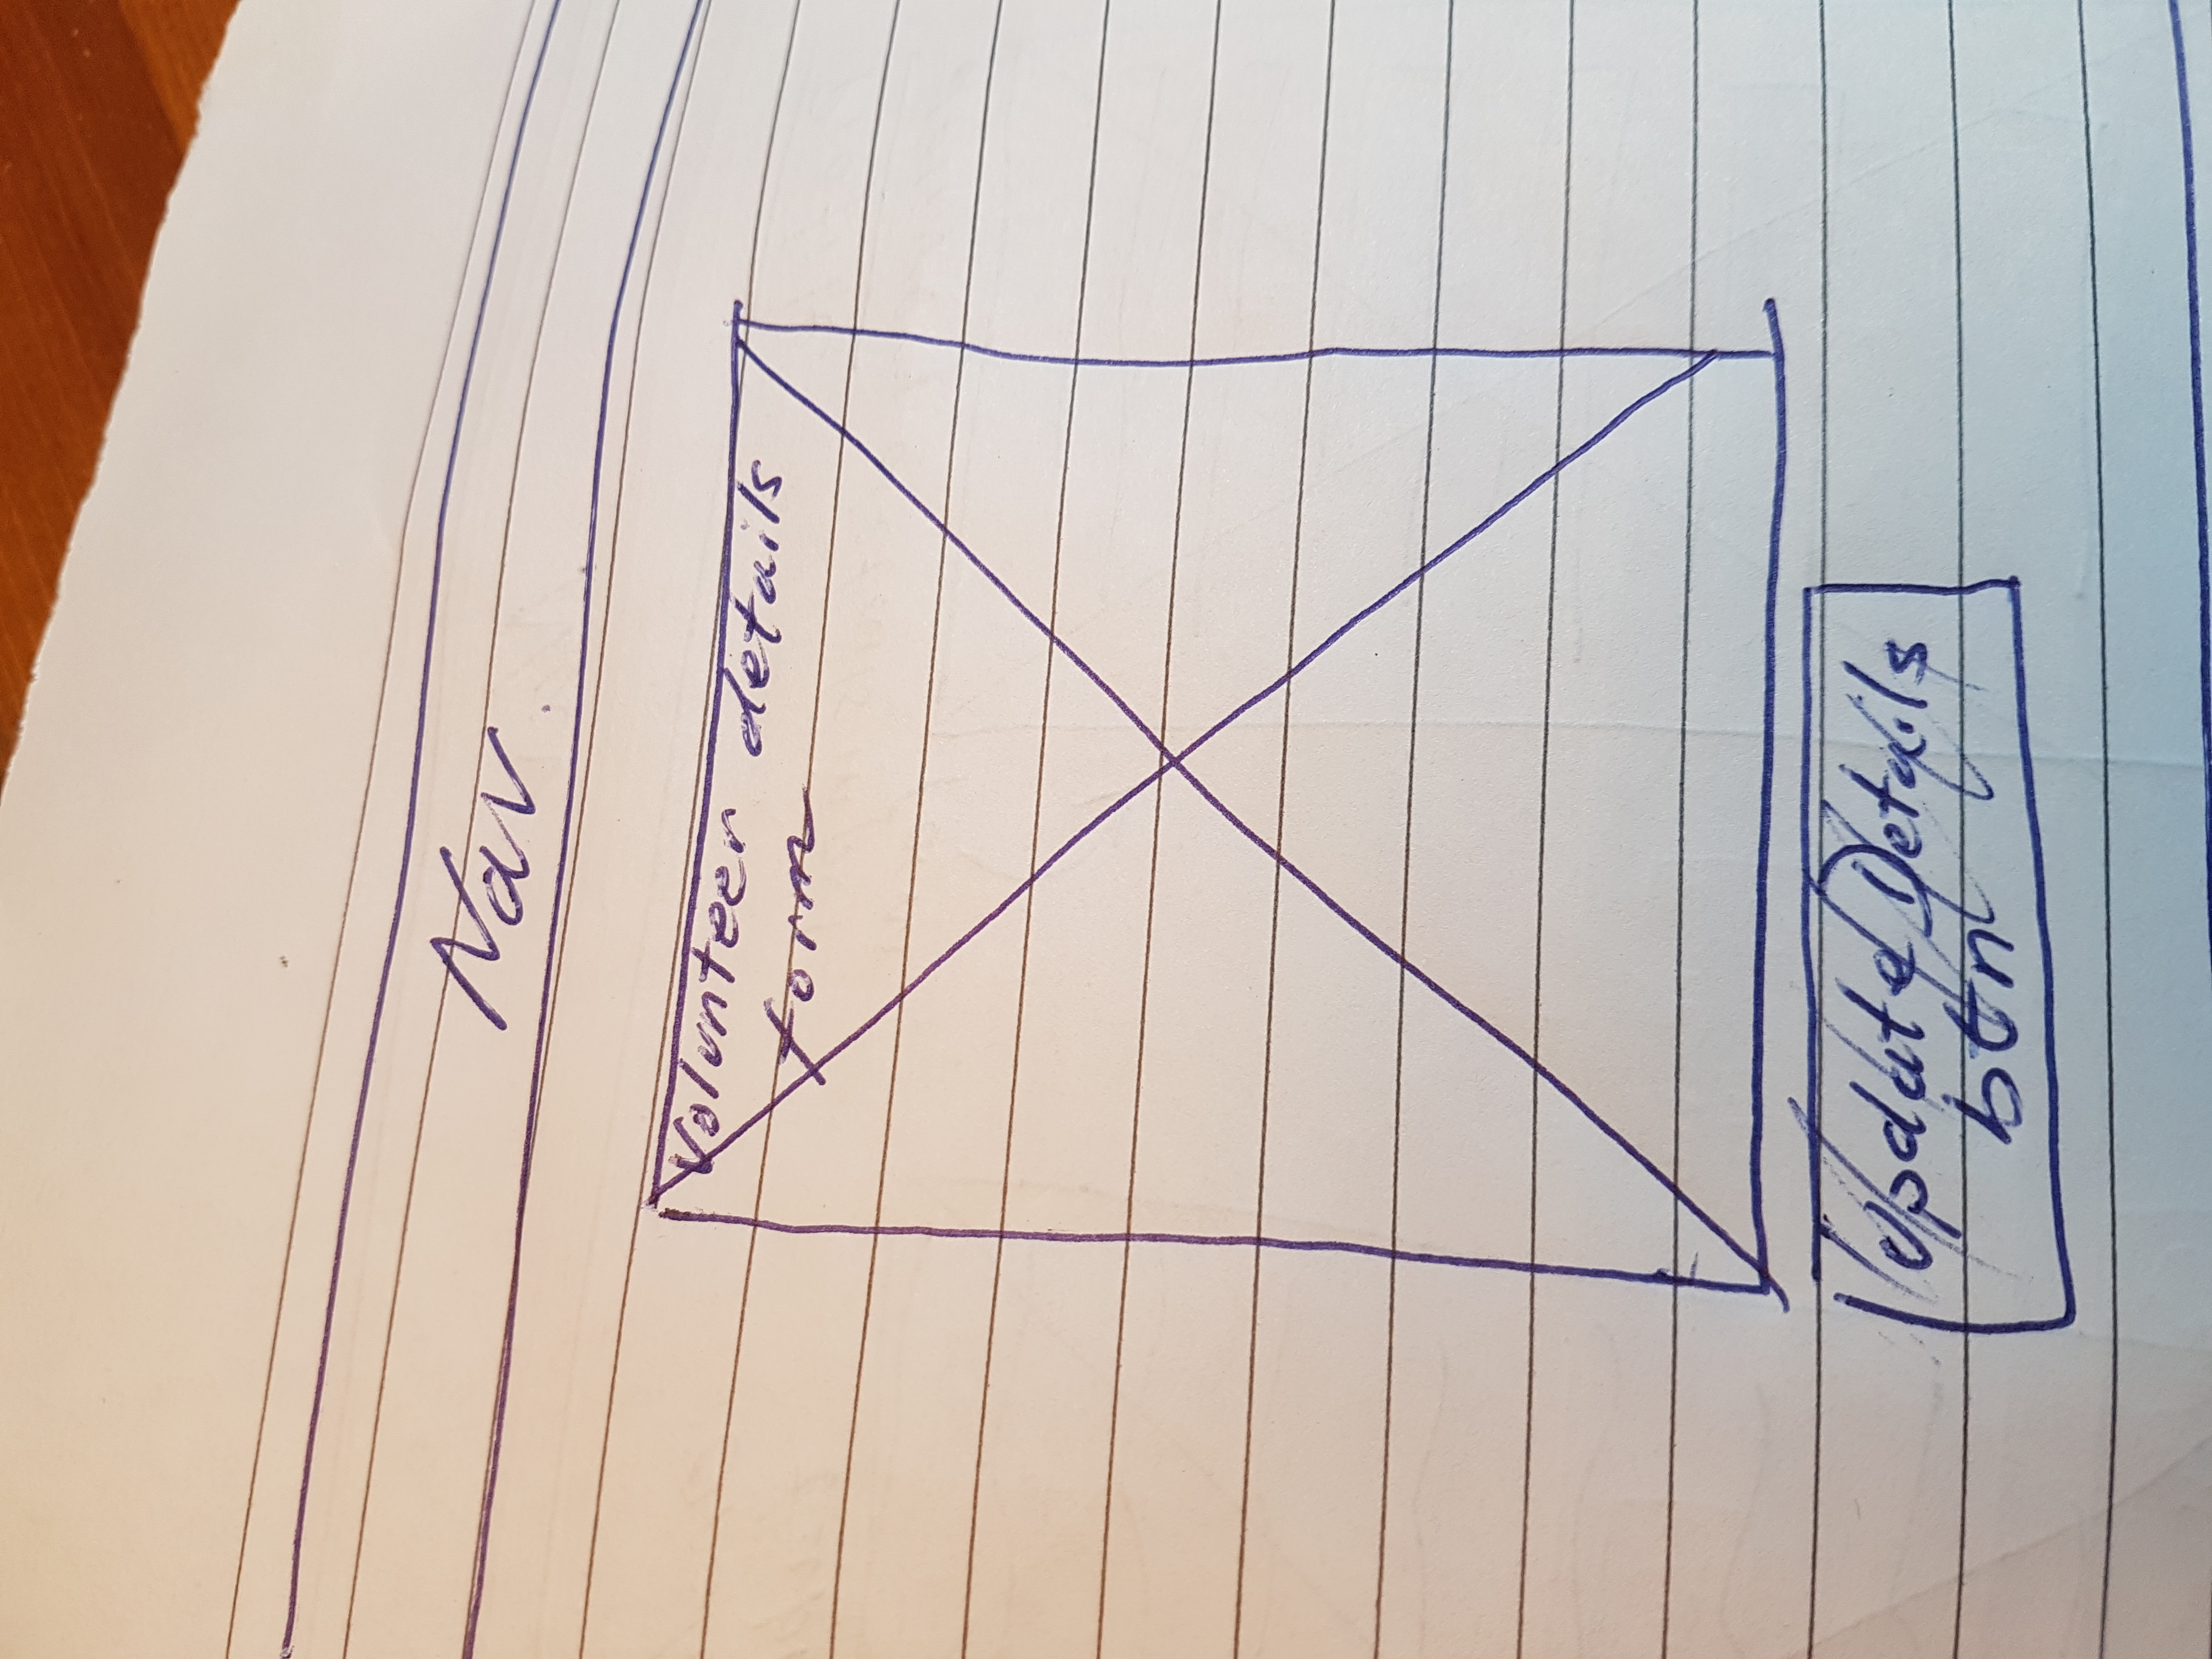 Nav
Volunteer details
form
Update Details
btn